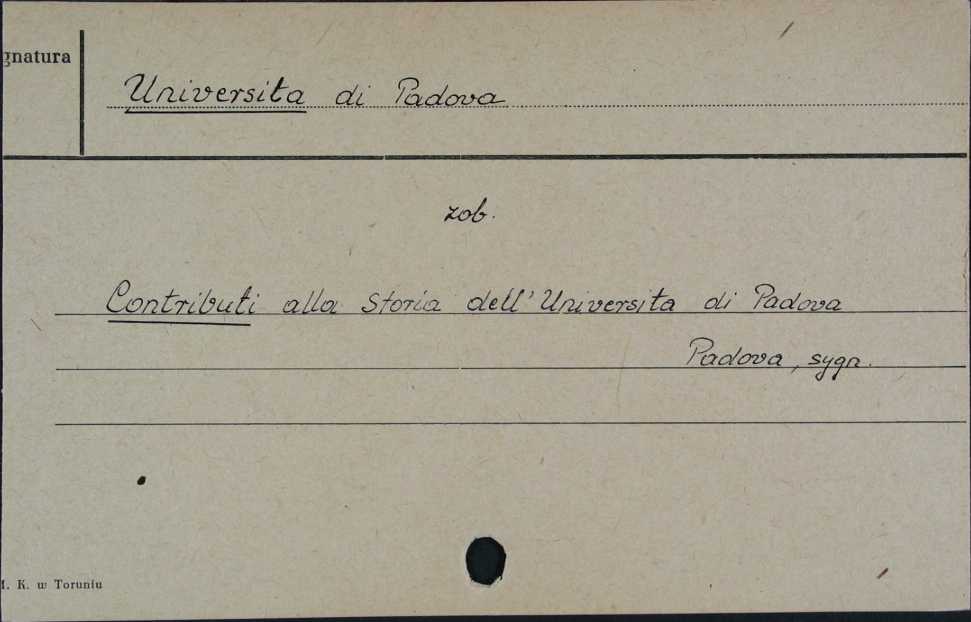 gnatura
Universita di Padova
zob.
Contributi alla Storia dell'Universita di Padova
Padova, sygn.
M. K. w Toruniu